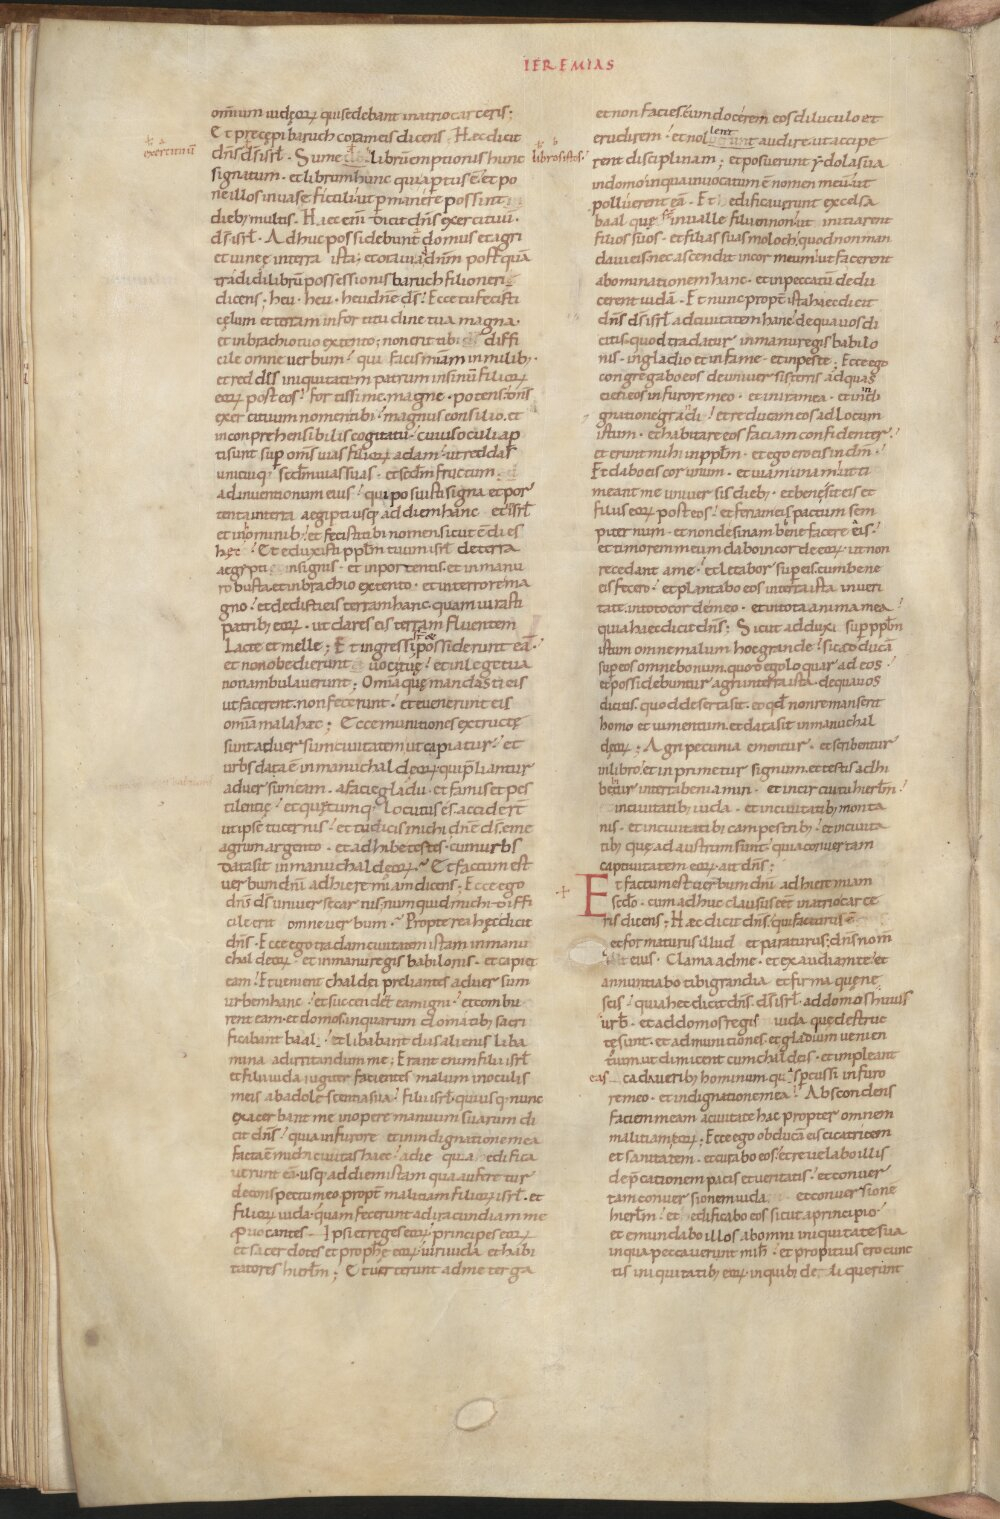 IEREMIAS
omnium iudęorum qui sedebant in atrio carceris;
Et pręcepi baruch coram eis dicens. Hęc dicit
exercituum
dñs ds isrl. Sume libru emptionis hunc
signatum. et librum hunc qui aptus e. et po
ne illos in uase fictili ut permanere possint
dieb; multis. Haec eni dicit dñs exercituum.
ds isrl. Adhuc possidebunt domus et agri
et uineę in terra ista; et oraui ad dnm postqua
tradidi libru possessionis baruch filio neri
dicens. heu. heu. heu dne ds! Ecce tu fecisti
cęlum et terram in fortitudine tua magna.
et in brachio tuo extento; non erit tibi diffi
cile omne uerbum! qui facis miam in milib;.
et reddis iniquitatem patrum in sinu filiorum
eorum post eos! fortissime. magne. potens. dns
exercituum nomen tibi! magnus consilio. et
inconprehensibilis cogitatu. cuius oculi ap
ti sunt sup oms uias filiorum adam. ut reddas
unicuiq; scdm uias suas. et scdm fructum
adinuentionum eius! qui posuisti signa et por
tenta in terra aegipti usq; ad diem hanc et in isrl
et in omnib;! et fecisti tibi nomen sicut e dies
hęc! Et eduxisti pplm tuum isrl de terra
aegypti in signis. et in portentis. et in manu
robusta. et in brachio extento. et in terrore ma
gno! et dedisti eis terram hanc. quam iurasti
patrib; eorum. ut dares eis terram fluentem
lacte et melle; Et ingressi st & possiderunt ea!
et non obedierunt uoci tuę! et in lege tua
non ambulauerunt; Omia quę mandasti eis
ut facerent. non fecerunt! et euenerunt eis
omia mala haec; Ecce munitiones extructę
sunt aduersum ciuitatem ut capiatur! et
urbs data e in manu chaldęorum qui pliantur
aduersum eam. a facie gladii. et famis et pes
tilentię! et quęcumq; locutus es. acciderunt
ut ipse tu cernis! et tu dicis michi dne ds. eme
agrum argento. et adhibe testes. cum urbs
data sit in manu chaldęorum. Et factum est
uerbum dni ad hieremiam dicens; Ecce ego
dns ds uniuersę carnis; numquid michi diffi
cile erit omne uerbum. Propterea hęc dicit
dns. Ecce ego tradam ciuitatem istam in manu
chaldeorum. et in manu regis babilonis. et capiet
eam! Et uenient chaldei preliantes aduersum
urbem hanc! et succendet eam igni! et combu
rent eam. et domos in quarum domatib; sacri
ficabant baal! et libabant diis alienis liba
mina ad irritandum me; Erant enim filii isrl
et filii iuda iugiter facientes malum in oculis
meis ab adolescentia sua! filii isrl qui usq; nunc
exacerbant me in opere manuum suarum di
cit dns! quia in furore et in indignatione mea
facta e michi ciuitas haec! a die qua edifica
uerunt ea. usq; ad diem istam qua auferetur
de conspectu meo. propt malitiam filiorum isrl. et
filiorum iuda. quam fecerunt ad iracundiam me
puocantes. Ipsi et reges eorum! principes eorum
et sacerdotes et prophę eorum. uiri iuda et habi
tatores hierlm; Et uerterunt ad me terga
et non facies! cum docerem eos diluculo et
erudirem! et noluerunt audire ut accipe
lent
libros istos!
rent disciplinam; et posuerunt ydola sua
in domo in qua inuocatum e nomen meu. ut
polluerent ea. Et edificauerunt excelsa
baal quę st in ualle filii ennon. ut initiarent
filios suos. et filias suas moloch! quod non man
daui eis nec ascendit in cor meum! ut facerent
abominationem hanc. et in peccatu dedu
cerent iuda. Et nunc propt ista haec dicit
dns ds isrl ad ciuitatem hanc! de qua uos di
citis quod tradatur in manu regis babilo
nis. in gladio et in fame. et in peste; Ecce ego
congregabo eos de uniuersis terris ad quas
eieci eos in furore meo. et in ira mea. et in indi
gnatione grandi! et reducam eos ad locum
istum. et habitare eos faciam confidenter!
et erunt mihi in pplm. et ego ero eis in dm.
Et dabo eis cor unum. et uiam unam! ut ti
meant me uniuersis dieb;. et bene sit eis et
filiis eorum post eos! et feriam eis pactum sem
piternum. et non desinam bene facere eis!
et timorem meum dabo in corde eorum. ut non
recedant a me! et letabor sup eis. cum bene
eis fecero! et plantabo eos in terra ista in ueri
tate. in toto corde meo. et in tota anima mea!
quia haec dicit dns; Sicut adduxi sup pplm
istum omne malum hoc grande! sic adduca
sup eos omne bonum. quod ego loquar ad eos!
et possidebuntur agri in terra ista. de qua uos
dicitis. quod deserta sit. et qd non remanserit
homo et iumentum. et data sit in manu chal
dęorum; Agri pecunia ementur. et scribentur
in libro! et inprimetur signum. et testis adhi
bebitur in terra beniamin. et in circuitu hierlm!
in ciuitatib; iuda. et in ciuitatib; monta
nis. et in ciuitatib; campestrib;! et in ciuita
tib; quę ad austrum sunt! quia conuertam
captiuitatem eorum. ait dns;
Et factum est uerbum dni ad hieremiam
scdo. cum adhuc clausus eet in atrio carce
ris dicens; Hæc dicit dns! qui facturus e
et formaturus illud et paraturus; dns nom
eius. Clama ad me. et exaudiam te! et
annuntiabo tibi grandia et firma quę ne
scis! quia hec dicit dns ds isrl ad domos huius
urb. et ad domos regis iuda quę destruc
tę sunt. et ad munitiones. et gladium uenien
tium ut dimicent cum chaldeis. et impleant
eas cadauerib; hominum. quos pcussi in furo
re meo. et in indignatione mea! Abscondens
faciem meam a ciuitate hac propter omnem
malitiam eorum; Ecce ego obduca ei cicatricem
et sanitatem. et curabo eos! et reuelabo illis
depcationem pacis et ueritatis! et conuer
tam conuersionem iuda et conuersione
hierlm! et edificabo eos sicut a principio
et emundabo illos ab omni iniquitate sua
in qua peccauerunt mihi! et propitius ero cunc
tis iniquitatib; eorum. in quib; deliquerunt